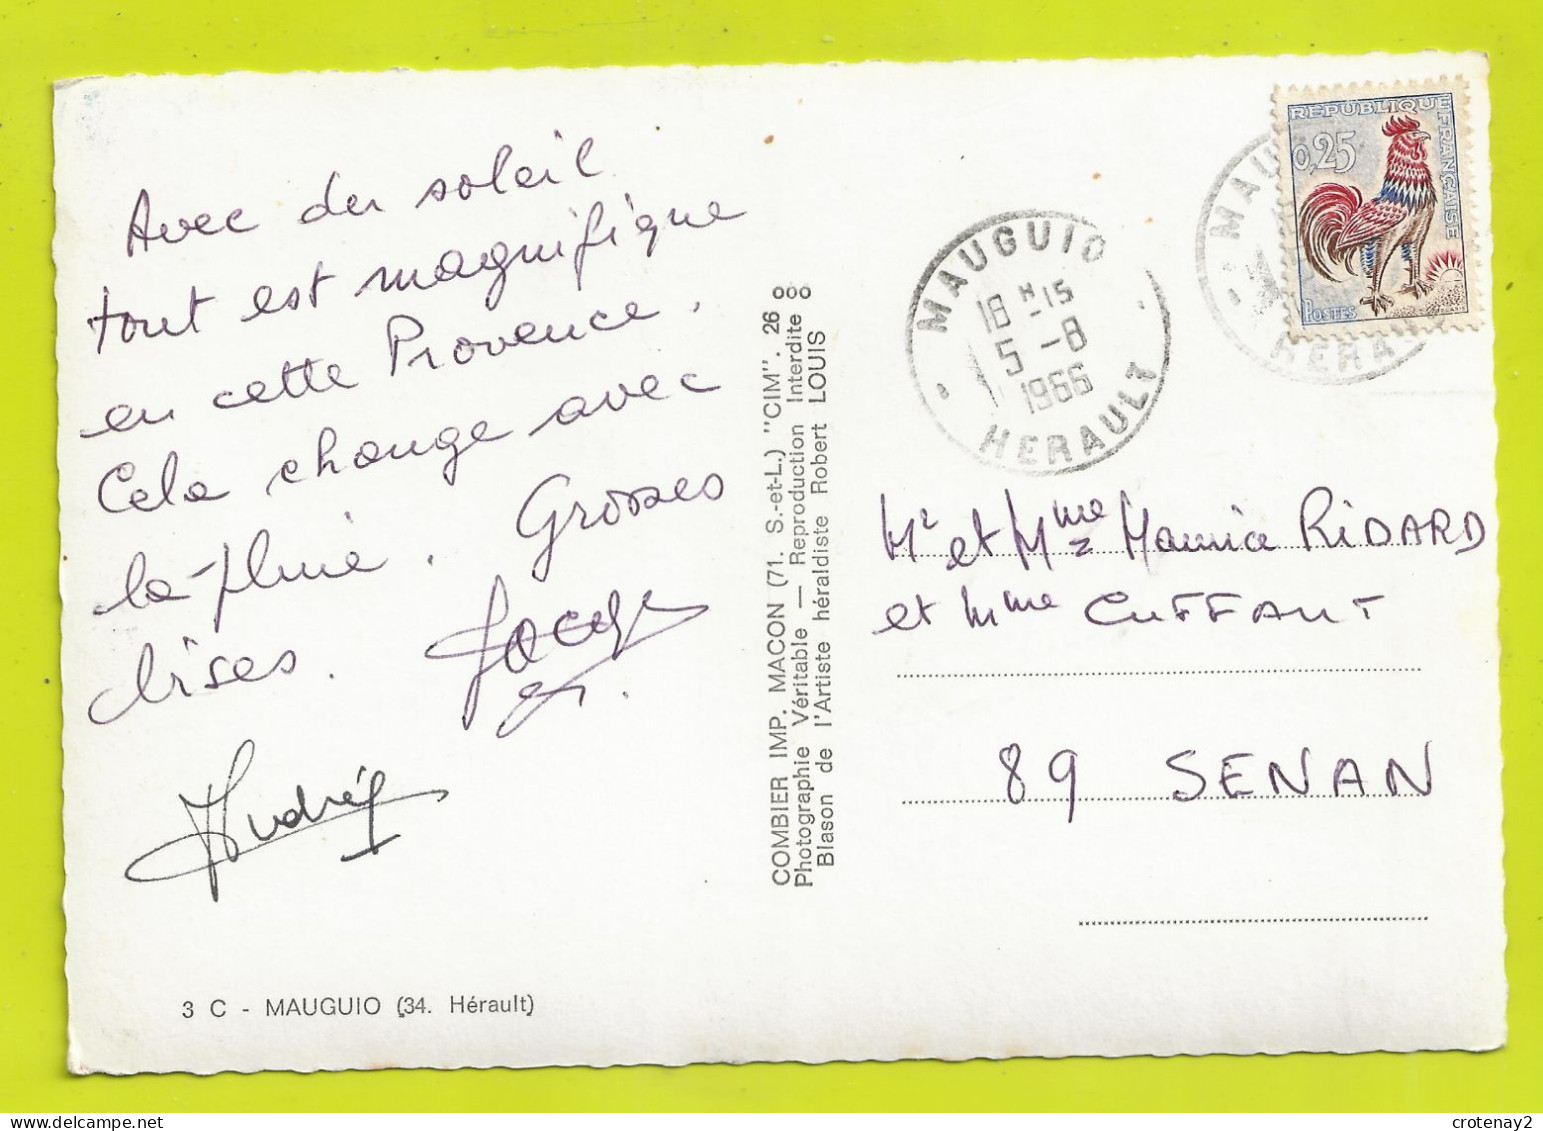 Avec du soleil
tout est magnifique
en cette Provence,
Cela change avec
la pluie. Grosses
bises.
André
3 C - MAUGUIO (34. Hérault)
COMBIER IMP. MACON (71. S.-et-L.) "CIM". 26
Photographie Véritable — Reproduction Interdite
Blason de l'Artiste héraldiste Robert LOUIS
MAUGUIO
18 H 15
5 - 8
1966
HERAULT
REPUBLIQUE FRANÇAISE
0,25
POSTES
Mr et Mme Maurice RIDARD
et Mme CUFFAUT
89 SENAN
crotenay2